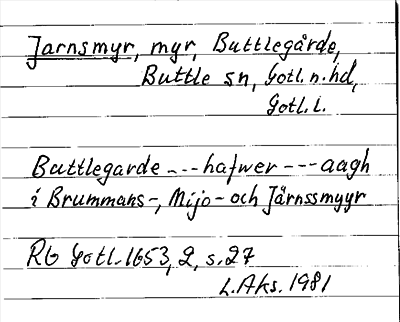 Jarnsmyr, myr, Buttlegårde,
Buttle sn, Gotl. n. hd,
Gotl. l.
Buttlegarde ---hafwer---aagh
i Brummans-, Mijo- och Järnssmyyr
Rb Gotl. 1653, 2, s. 27
L. Aks. 1981